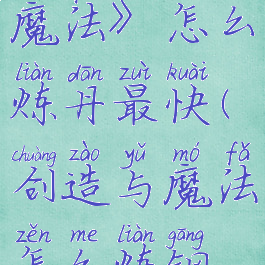 魔法》 怎么
liàn dān zuì kuài
炼丹最快(
chuàng zào yǔ mó fǎ
创造与魔法
zěn me liàn gāng
怎么炼钢